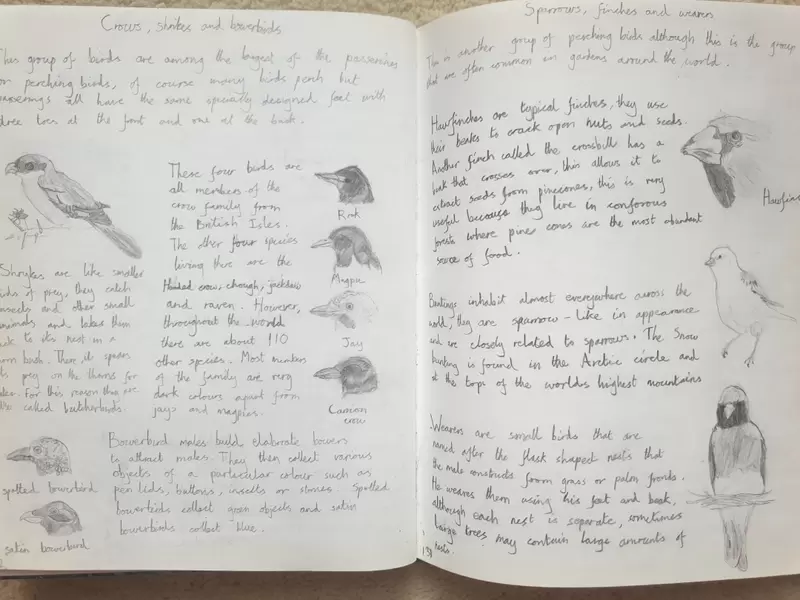 Crows, shrikes and bowerbirds
This group of birds are among the largest of the passerines
or perching birds, of course many birds perch but
passerings all have the same specially designed feet with
three toes at the front and one at the back.
These four birds are
all members of the
crow family from
the British Isles.
The other four species
living there are the
Hooded crow, chough, jackdaw
and raven. However,
throughout the world
there are about 110
other species. Most members
of the family are very
dark colours apart from
jays and magpies.
Rook
Magpie
Jay
Carrion
crow
Shrikes are like smaller
birds of prey, they catch
insects and other small
animals and takes them
back to its nest in a
thorn bush. There it spears
its prey on the thorns for
later. For this reason they are
also called butcherbirds.
spotted bowerbird
satin bowerbird
Bowerbird males build elaborate bowers
to attract males. They then collect various
objects of a particular colour such as
pen lids, buttons, insects or stones. Spotted
bowerbirds collect green objects and satin
bowerbirds collect blue.
Sparrows, finches and weavers
This is another group of perching birds although this is the group
that are often common in gardens around the world.
Hawfinches are typical finches, they use
their beaks to crack open nuts and seeds.
Another finch called the crossbill has a
beak that crosses over, this allows it to
extract seeds from pinecones, this is very
useful because they live in conforous
forests where pine cones are the most abundant
source of food.
Hawfinc
Buntings inhabit almost everywhere across the
world, they are sparrow-like in appearance
and are closely related to sparrows. The Snow
bunting is found in the Arctic circle and
at the tops of the worlds highest mountains
Weavers are small birds that are
named after the flask shaped nests that
the male constructs from grass or palm fronds.
He weaves them using his feet and beak,
although each nest is separate, sometimes
large trees may contain large amounts of
nests.